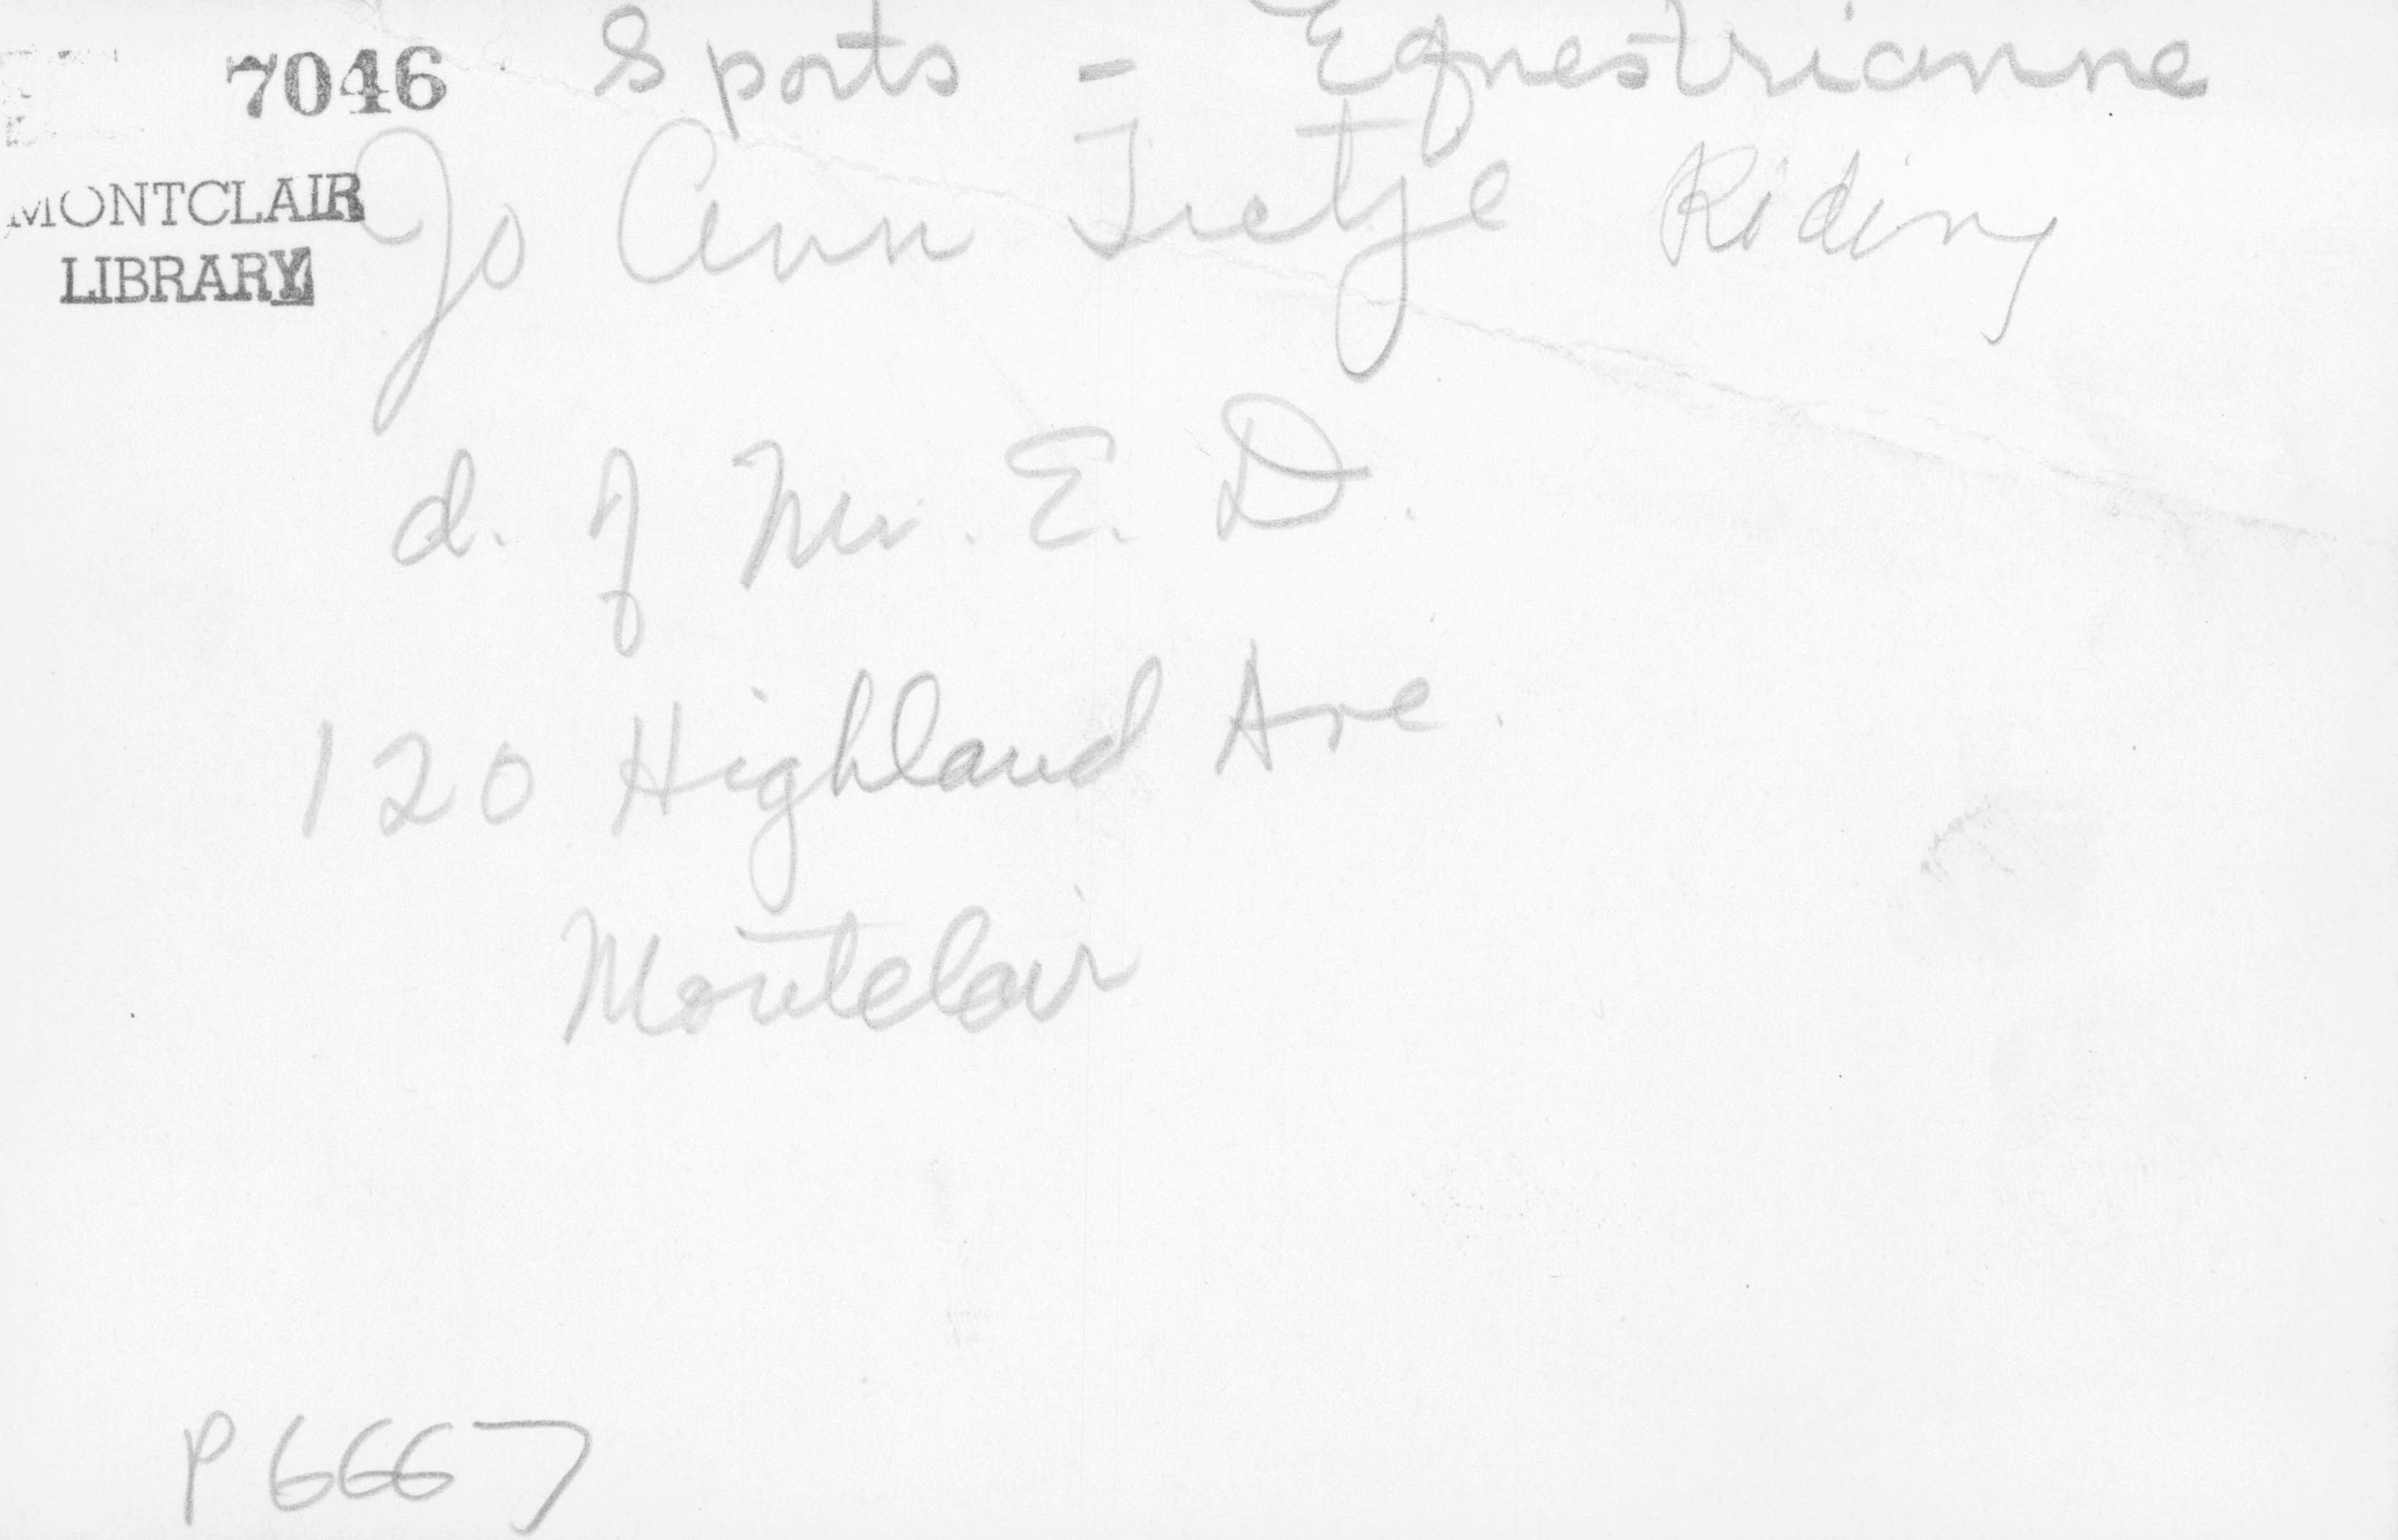 7046 Sports - Equestrianne
MONTCLAIR
LIBRARY
Jo Ann Tietje Riding
d. of Mr. E. D.
120 Highland Ave.
Montclair
P6667